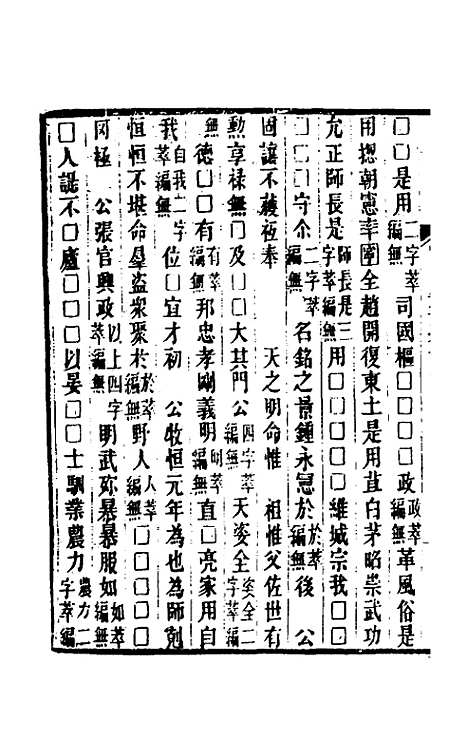 □□是用二字萃編無司國樞□□□□政政萃編無革風俗是
用揔朝憲牽圉全趙開復東土是用苴白茅昭崇武功
允正師長是師長是三字萃編無用□□□□維城宗我□□
□□□守尒二字萃編無名銘之景鍾永冠於於萃編無後 公
固讓不獲祗奉 天之明命惟 祖惟父佐世有
勳享祿無□及□□大其門公四字萃編無天姿全姿全二字萃編
無德□□有有萃編無邦忠孝剛義明明萃編無直□亮家用自
我自我二字萃編無位□宜才初 公牧恒元年為也為師剋
恒恒不堪命羣盜衆聚於於萃編無野人人萃編無□□□□□
罔極 公張官興政以上四字萃編無明武殄暴暴服如如萃編無
□人謡不□廬□□□□以晏□□士馴業農力農力二字萃編